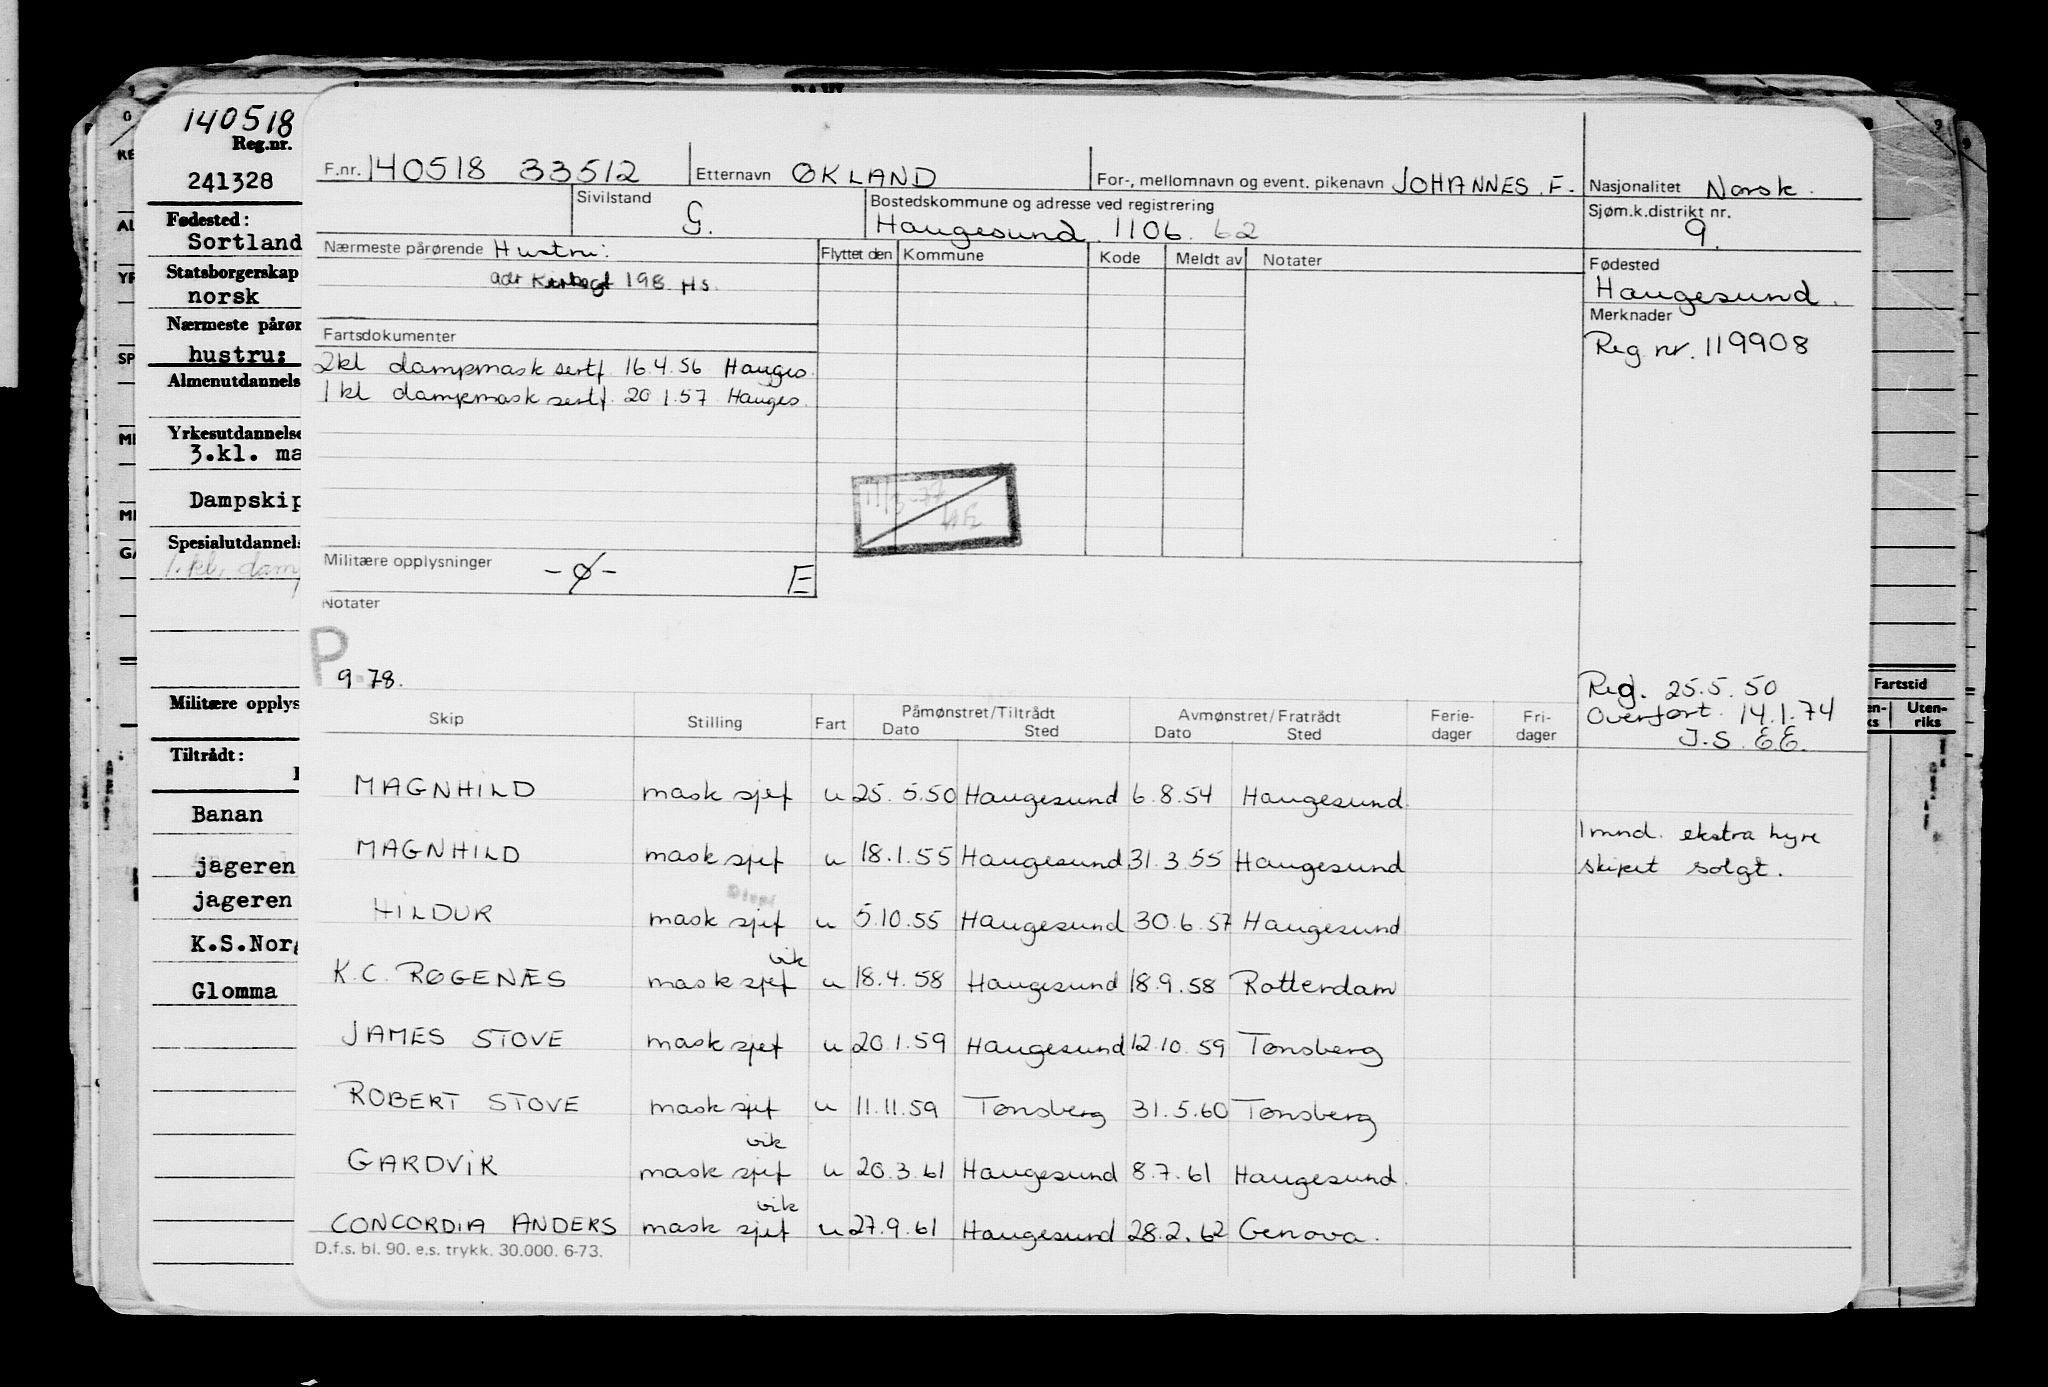 140518
Reg.nr.
241328
Fødested:
Sortland
Statsborgerskap
norsk
Nærmeste pårør
hustru:
Almenutdannels
Yrkesutdannelse
3.kl. ma
Dampskip
Spesialutdannels
1. kl. dam
Militære opplys
Tiltrådt:
Banan
jageren
jageren
K.S.Norg
Glomma
F.nr. 140518 33512 Etternavn ØKLAND For-, mellomnavn og event. pikenavn JOHANNES F. Nasjonalitet Norsk.
Sivilstand G. Bostedskommune og adresse ved registrering Sjøm.k.distrikt nr.
Haugesund 1106. 62 9.
Nærmeste pårørende Hustru: Flyttet den Kommune Kode Meldt av Notater Fødested
adr 198 Hs. Haugesund.
Merknader
Fartsdokumenter Reg nr. 119908
2kl dampmask sertf. 16.4.56 Hauges.
1 kl dampmask sertf. 20 1.57 Hauges.
Militære opplysninger -ø- E
Notater
P
9.78.
Reg. 25.5.50
Overført. 14.1.74
J.S. EE.
Skip Stilling Fart Påmønstret/Tiltrådt Avmønstret/Fratrådt Ferie- Fri-
Dato Sted Dato Sted dager dager
MAGNHILD mask sjef u 25. 5.50 Haugesund 6.8.54 Haugesund.
MAGNHILD mask sjef u 18.1.55 Haugesund 31.3.55 Haugesund 1 mnd. ekstra hyre
skipet solgt.
HILDUR mask sjef u 5.10.55 Haugesund 30.6.57 Haugesund
K.C. ROGENÆS mask sjef vik u 18.4.58 Haugesund 18.9.58 Rotterdam
JAMES STOVE mask sjef u 20.1.59 Haugesund 12.10.59 Tønsberg
ROBERT STOVE mask sjef u 11.11.59 Tønsberg 31.5.60 Tønsberg
GARDVIK mask sjef vik u 20.3.61 Haugesund 8.7.61 Haugesund.
CONCORDIA ANDERS mask sjef vik u 27.9.61 Haugesund 28.2.62 Genova.
D.f.s. bl. 90. e.s. trykk. 30.000. 6-73.
Fartstid
Uten-
riks